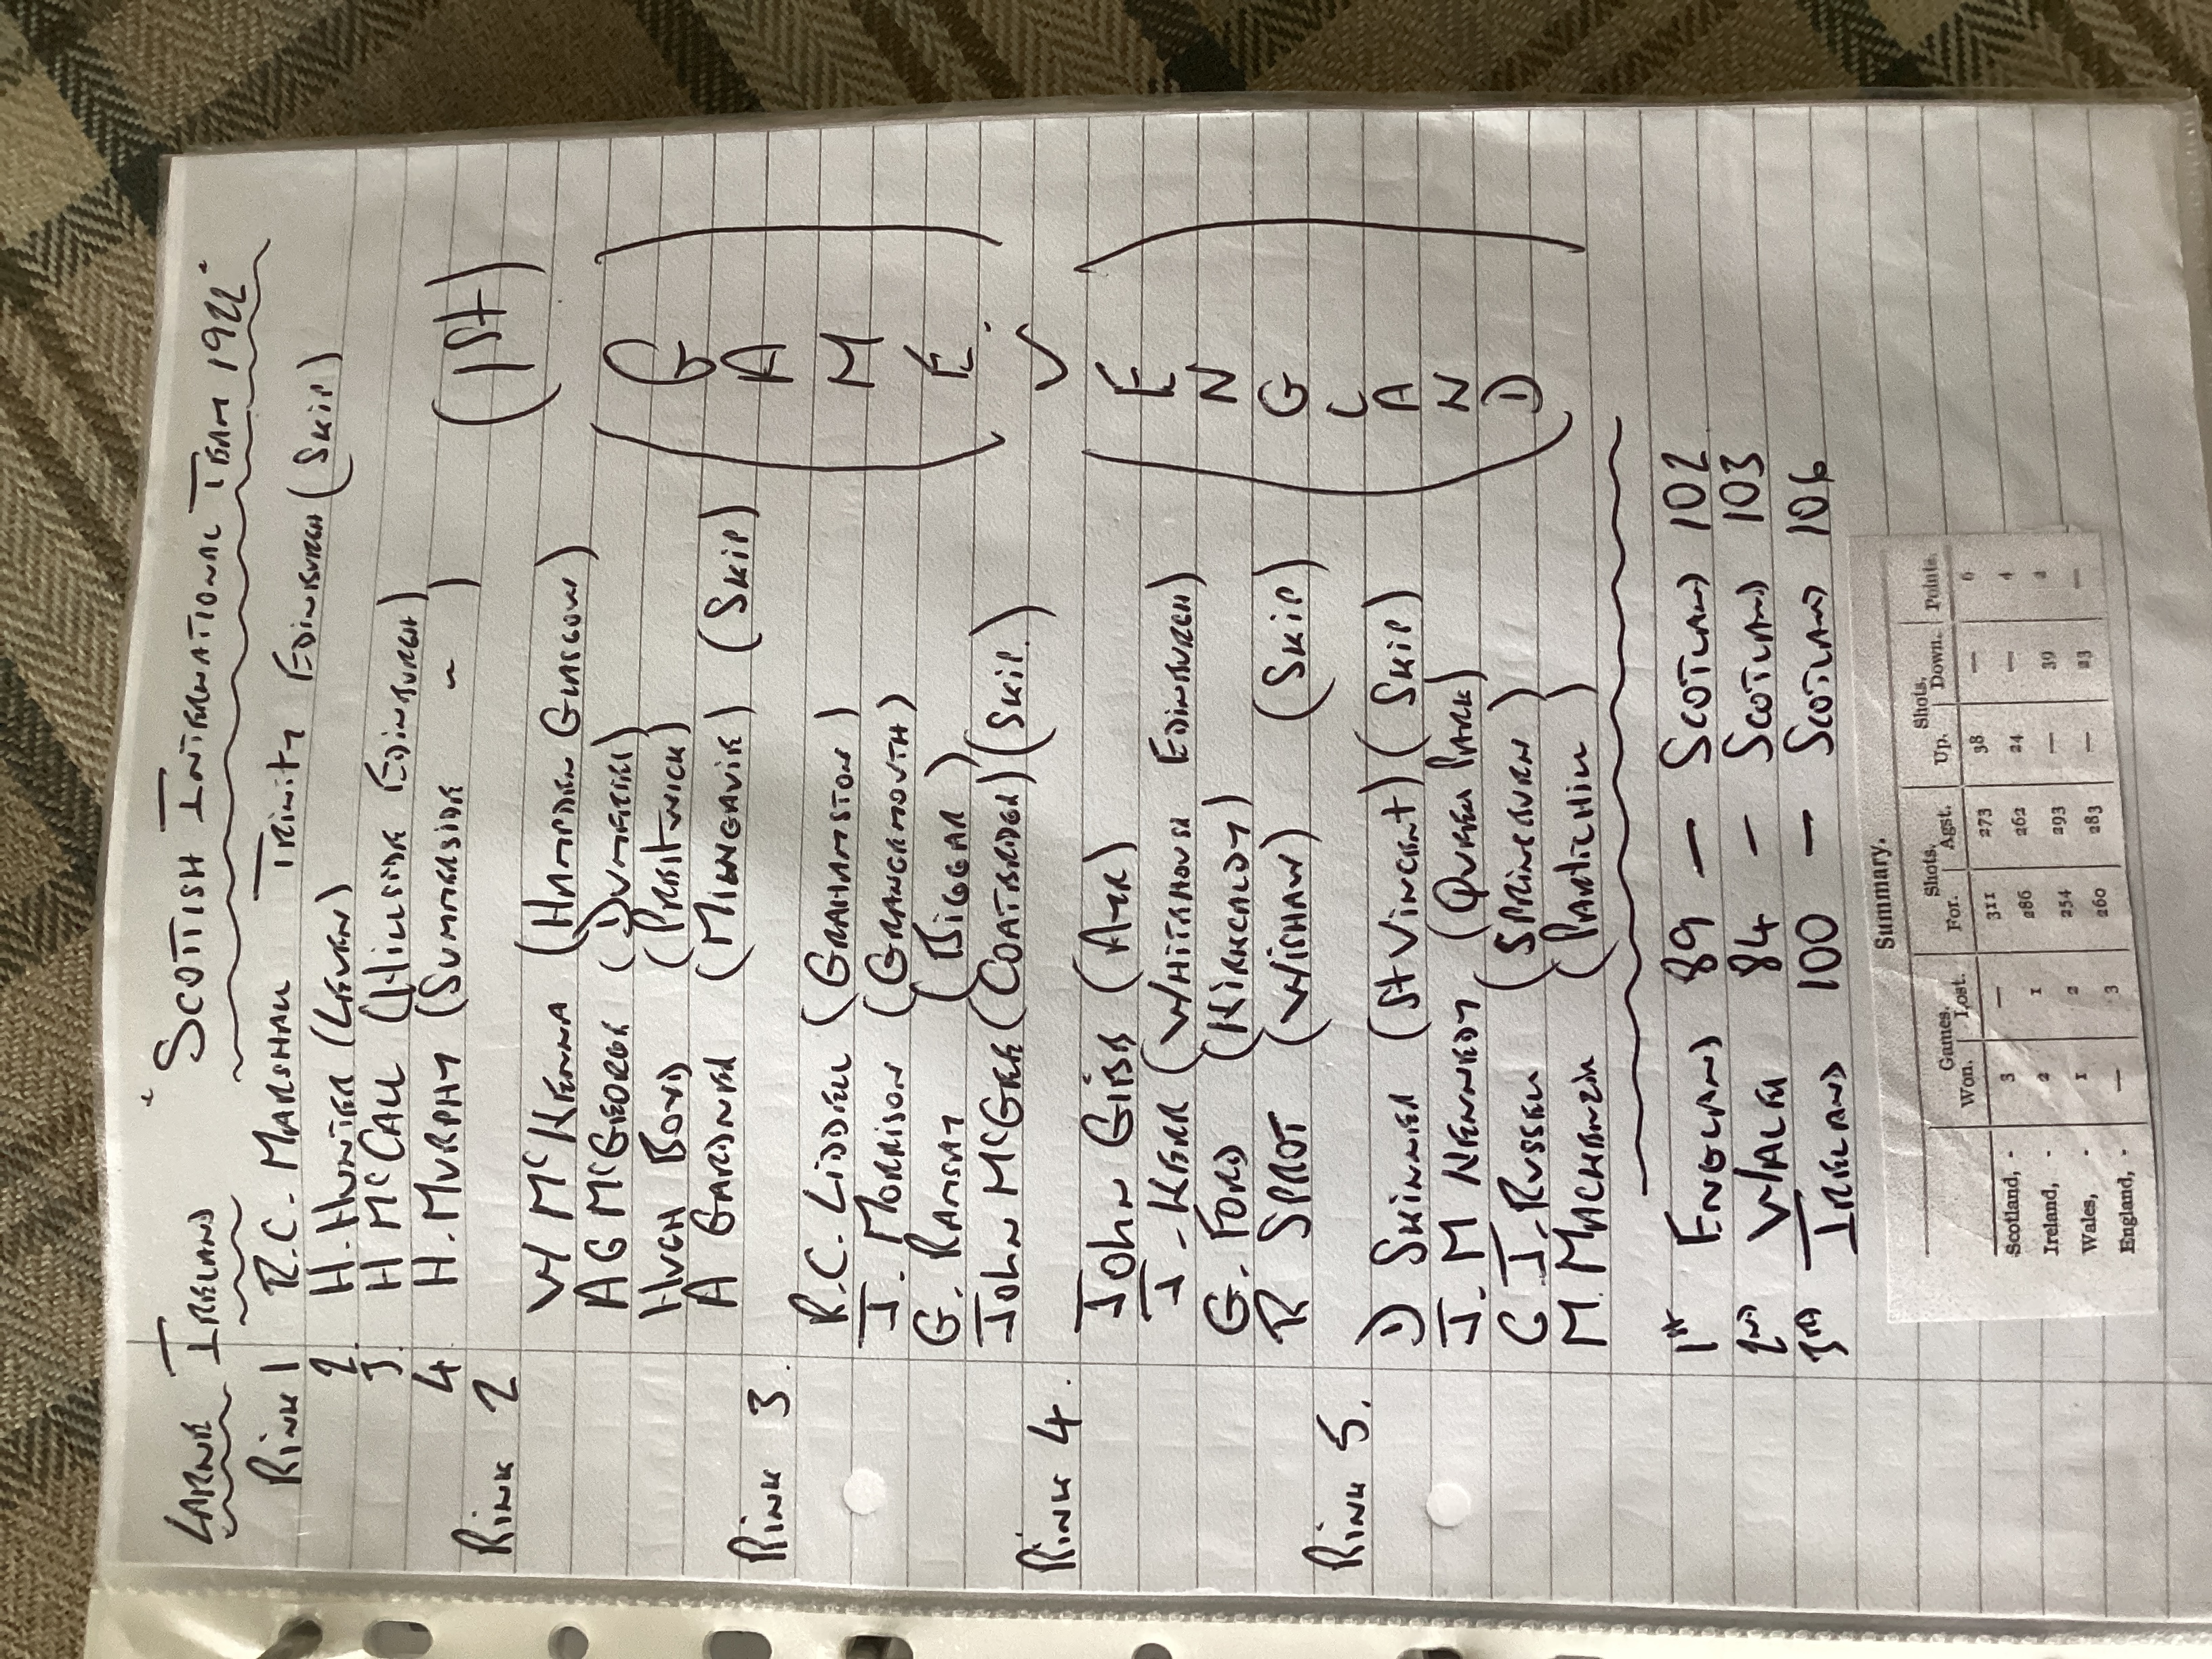 " SCOTTISH INTERNATIONAL TEAM 1922"
LARNE IRELAND
RINK 1 R.C. MARSHALL TRINITY EDINBURGH (SKIP)
2 H. HUNTER (LEVEN)
3. H McCALL (HILLSIDE EDINBURGH)
4 H. MURPHY (SUMMERSIDE " )
RINK 2 (1St)
W McKENNA (HAMPDEN GLASGOW)
A G McGEORGE (DUMFRIES)
HUGH BOND (PRESTWICK)
A GARDNER (MILNGAVIE) (SKIP)
GAME.
RINK 3.
R.C. LIDDELL (GRAHAMSTON)
J. MORRISON (GRANGEMOUTH)
G. RAMSAY (BIGGAR)
JOHN McGEE (COATBRIDGE) (SKIP.)
V
RINK 4.
JOHN GIBB (AYR)
J. KERR (WHITEHOUSE EDINBURGH)
G. FORD (KIRKCALDY)
R SPROT (WISHAW) (SKIP)
ENGLAND
RINK 5.
D SKINNER (St VINCENT) (SKIP)
J. M KENNEDY (QUEEN PARK)
C J. RUSSELL (SPRINGBURN)
M. MACKENZIE (PARTICKHILL)
1st ENGLAND 89 — SCOTLAND 102
2ND WALES 84 — SCOTLAND 103
3RD IRELAND 100 — SCOTLAND 106
Summary.
Games. Shots. Shots.
Won. Lost. For. Agst. Up. Down. Points.
Scotland, - 3 — 311 273 38 — 6
Ireland, - 2 1 286 262 24 — 4
Wales, - 1 2 254 293 — 39 2
England, - — 3 260 283 — 23 —